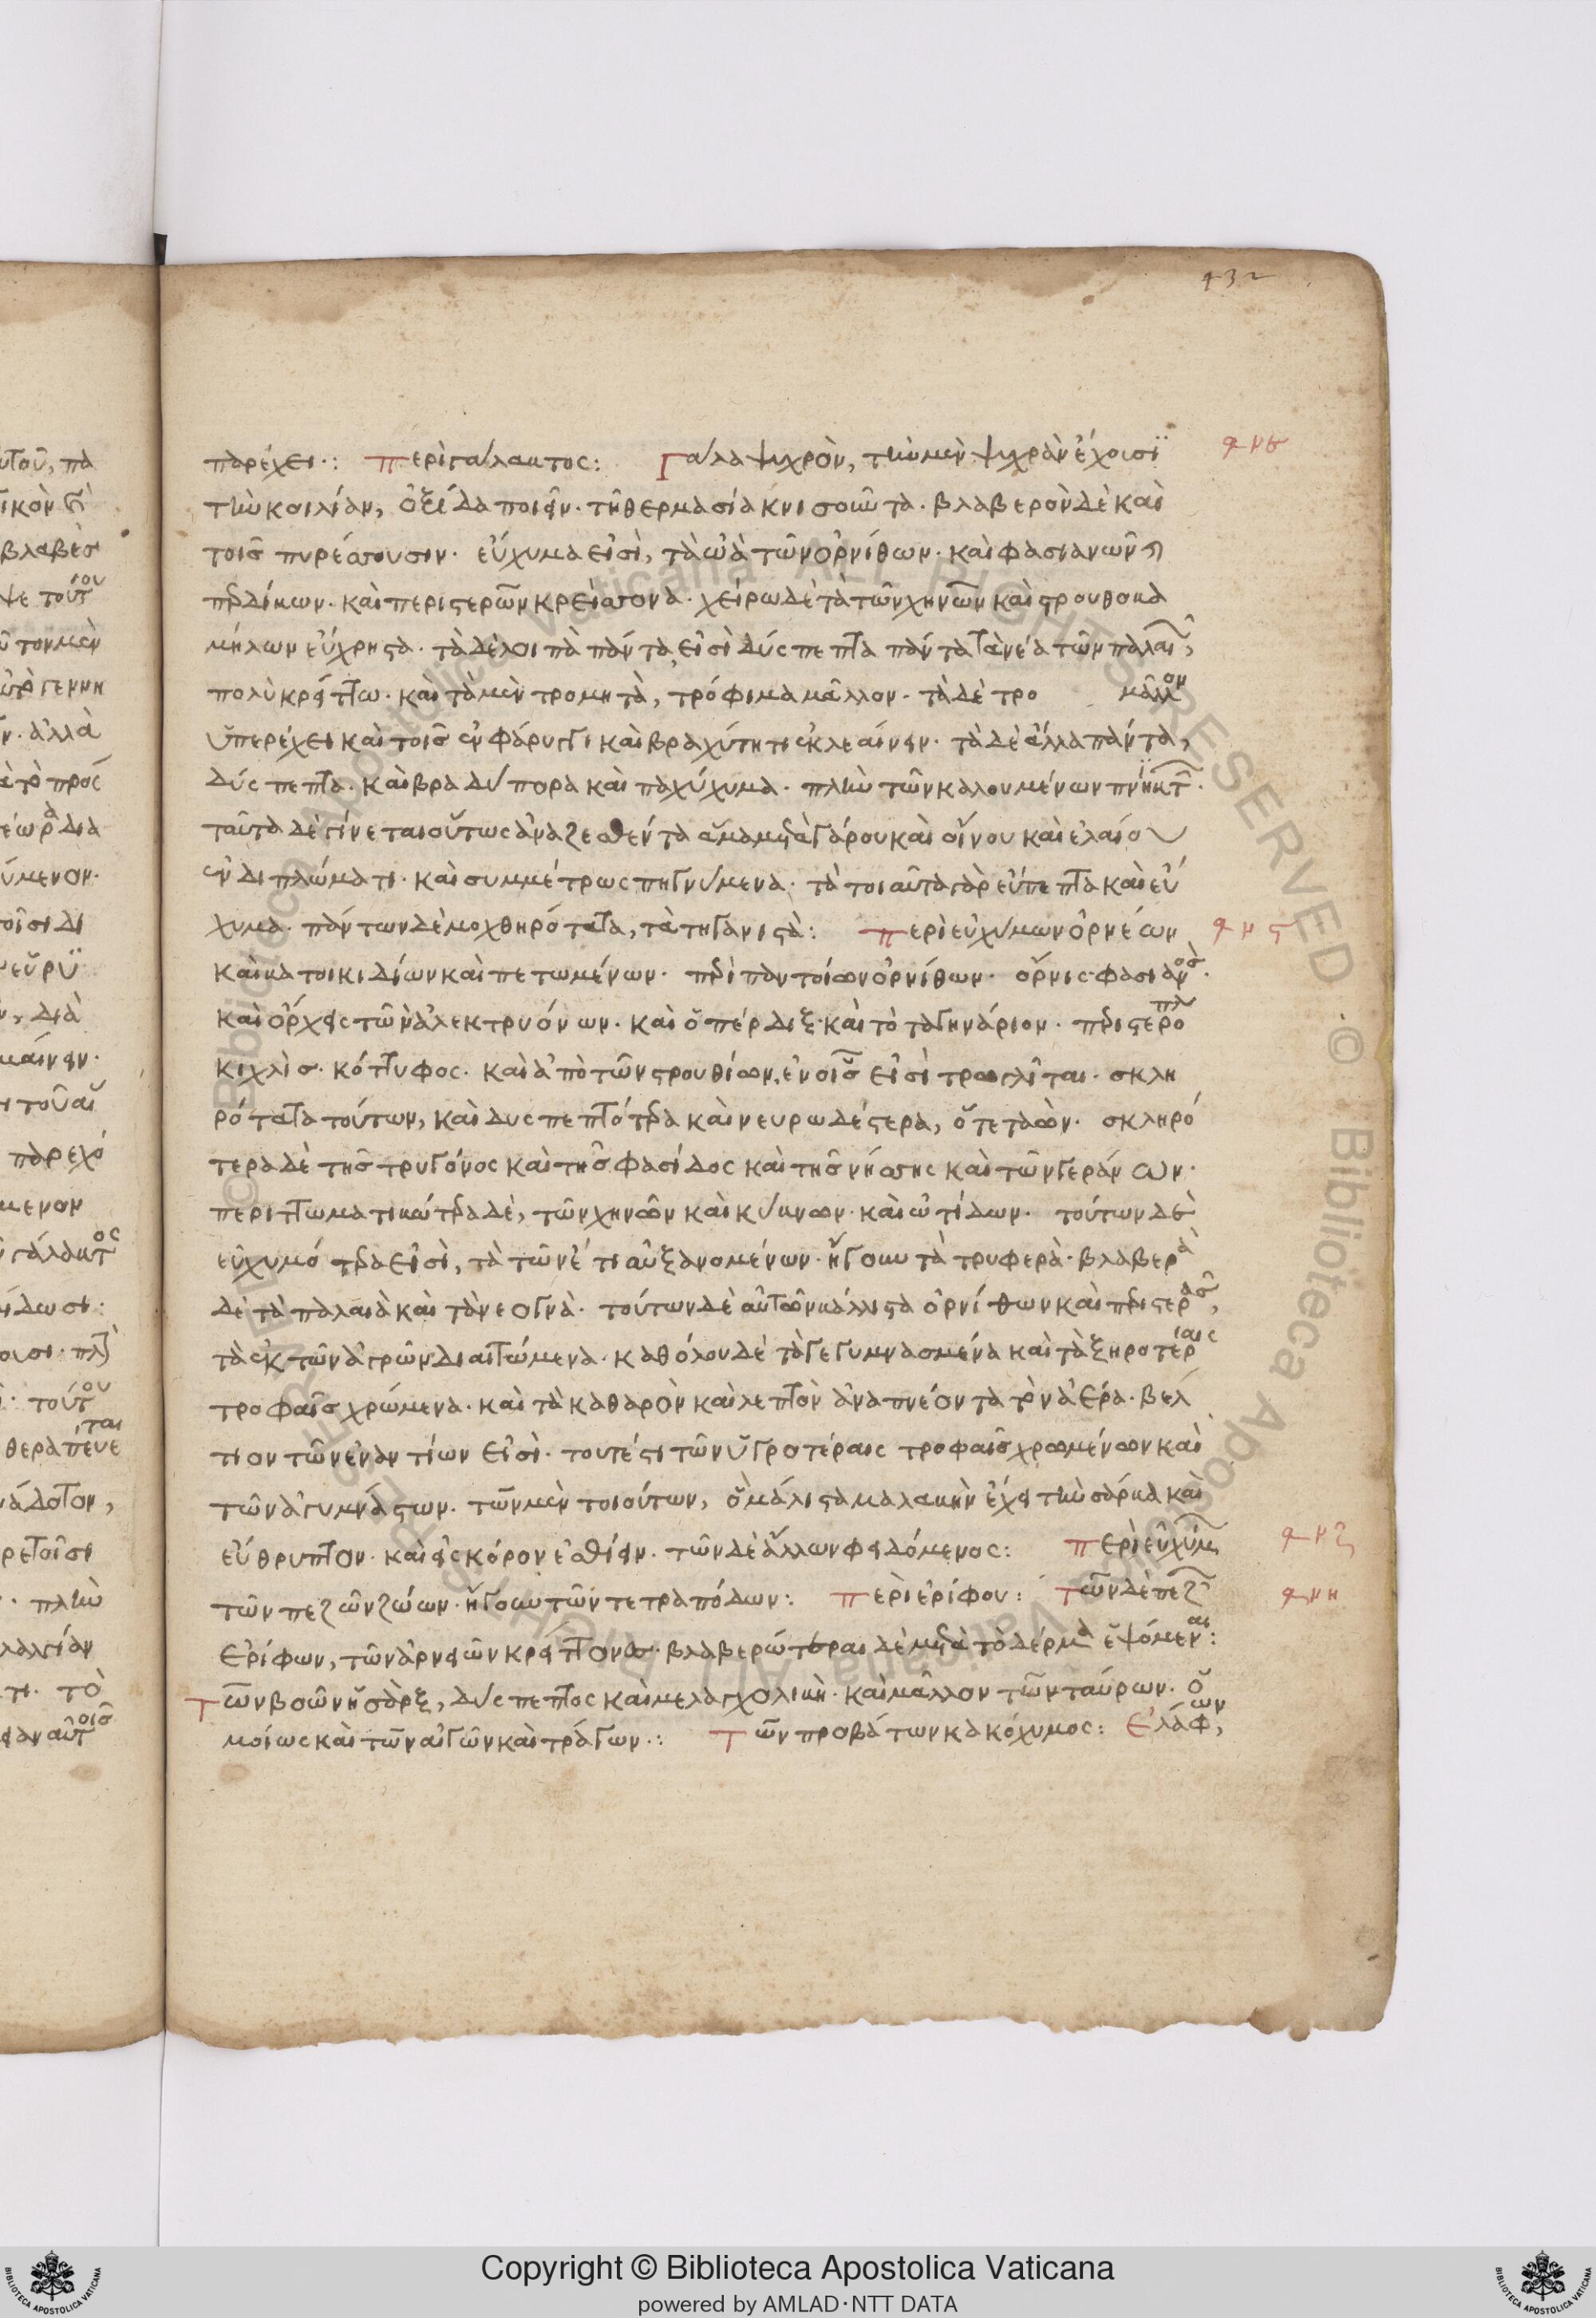 432
παρέχει·: περὶ γάλακτος: Γάλα ψυχρὸν, τὴν μὲν ψυχρὰν ἔχουσϊ ϥνε
τὴν κοιλίαν, ὀξίδα ποιεῖν· τῆ θερμασία κνισοῦντα· βλαβερὸν δὲ καὶ
τοῖς πυρέσσουσιν· εὔχυμα εἰσὶ, τὰ ὠὰ τῶν ὀρνίθων· καὶ φασιανῶν
περδίκων· καὶ περιστερῶν κρείσσονα· χείρω δὲ τὰ τῶν χηνῶν καὶ στρουθοκα
μήλων εὔχρηστα· τὰ δὲ λοιπὰ πάντα, εἰσὶ δύσπεπτα πάντα τὰ νέα τῶν παλαι
πολὺ κρείττω· καὶ τὰ μὲν τρομητὰ, τρόφιμα μᾶλλον· τὰ δὲ τρο μᾶλλον
ὑπερέχει καὶ τοῖς ἐν φάρυγγι καὶ βραχύτητι ἐκλεαίνειν· τὰ δὲ ἄλλα πάντα,
δύσπεπτα· καὶ βραδύπορα καὶ παχύχυμα· πλὴν τῶν καλουμένων πνηκτ·
ταῦτα δὲ γίνεται οὕτως ἀναζεσθέντα ἅμα μετὰ γάρου καὶ οἴνου καὶ ἐλαίου
ἐν διπλώματι· καὶ συμμέτρως πηγνύμενα· τὰ τοιαῦτα γὰρ εὔπεπτα καὶ εὔ
χυμα· πάντων δὲ μοχθηρότατα, τὰ τηγανιστὰ: περὶ εὐχύμων ὀρνέων ϥνς
καὶ κατοικιδίων καὶ πετωμένων· περὶ παντοίων ὀρνίθων· ὄρνις φασιανὸς·
καὶ ὄρχεις τῶν ἀλεκτρυόνων· καὶ ὁ πέρδιξ· καὶ τὸ ταγηνάριον· περιστερό πλ
κιχλὶς· κόττυφος· καὶ ἀπὸ τῶν στρουθίων, ἐν οἷς εἰσὶ τρωγλῖται· σκλη
ρότατα τούτων, καὶ δυσπεπτότερα καὶ νευρωδέστερα, ὅτε ταὼν· σκληρό
τερα δὲ τῆς τρυγόνος καὶ τῆς φασίδος καὶ τῆς νήσσης καὶ τῶν γεράνων·
περιττωματικώτερα δὲ, τῶν χηνῶν καὶ κύκνων· καὶ ὠτίδων· τούτων δὲ
εὐχυμότερα εἰσὶ, τὰ τῶν ἔτι αὐξανομένων· ἤγουν τὰ τρυφερὰ· βλαβερὰ
δὲ τὰ παλαιὰ καὶ τὰ νεογνὰ· τούτων δὲ αὐτῶν κάλλιστα ὀρνίθων καὶ περιστερὰς,
τὰ ἐκ τῶν ἀγρῶν διαιτώμενα· καθόλου δὲ τὰ γεγυμνασμένα καὶ τὰ ξηροτέραις
τροφαῖς χρώμενα· καὶ τὰ καθαρὸν καὶ λεπτὸν ἀναπνέοντα τὸν ἀέρα· βελ
τιον τῶν ἐναντίων εἰσὶ· τουτέστι τῶν ὑγροτέραις τροφαῖς χρωμένων καὶ
τῶν ἀγυμνάστων· τῶν μὲν τοιούτων, ὁ μάλιστα μαλακὴν ἔχει τὴν σάρκα καὶ
εὔθρυπτον· καὶ εἰς κόρον ἐσθίειν· τῶν δὲ ἄλλων φειδόμενος: περὶ εὐχύμ ϥνζ
τῶν πεζῶν ζώων· ἤγουν τῶν τετραπόδων: περὶ ἐρίφου: τῶν δὲ πεζ ϥνη
ἐρίφων, τῶν ἀρνειῶν κρείττονα· βλαβερώτεραι δὲ μετὰ τὸ δέρμα ἑψόμεναι:
τῶν βοῶν ἡ σὰρξ, δύσπεπτος καὶ μελαγχολικὴ· καὶ μᾶλλον τῶν ταύρων· ὁ
μοίως καὶ τῶν αἰγῶν καὶ τράγων·: τῶν προβάτων κακόχυμος: Ἐλάφων,
Copyright © Biblioteca Apostolica Vaticana
powered by AMLAD·NTT DATA